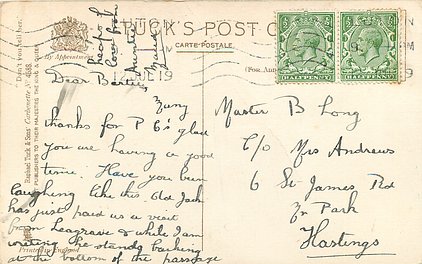 TUCK'S POST
CARTE POSTALE
By Appointment
(For
HALFPENNY
HALFPENNY
12 JUL 19
"Don't you tell her."
Raphael Tuck & Sons'
PUBLISHERS TO THEIR MAJESTIES THE KING & QUEEN
Heaps of
love from
Auntie
Dear Bertie,
thanks for P C's glad
you are having a good
time. Have you been
laughing like this. Old Jack
has just paid us a visit
from Leagrave & while I am
writing he stands barking
at the bottom of the passage
Printed in England
Master B. Long
C/o Mrs Andrews
6 St James Rd
Park
Hastings